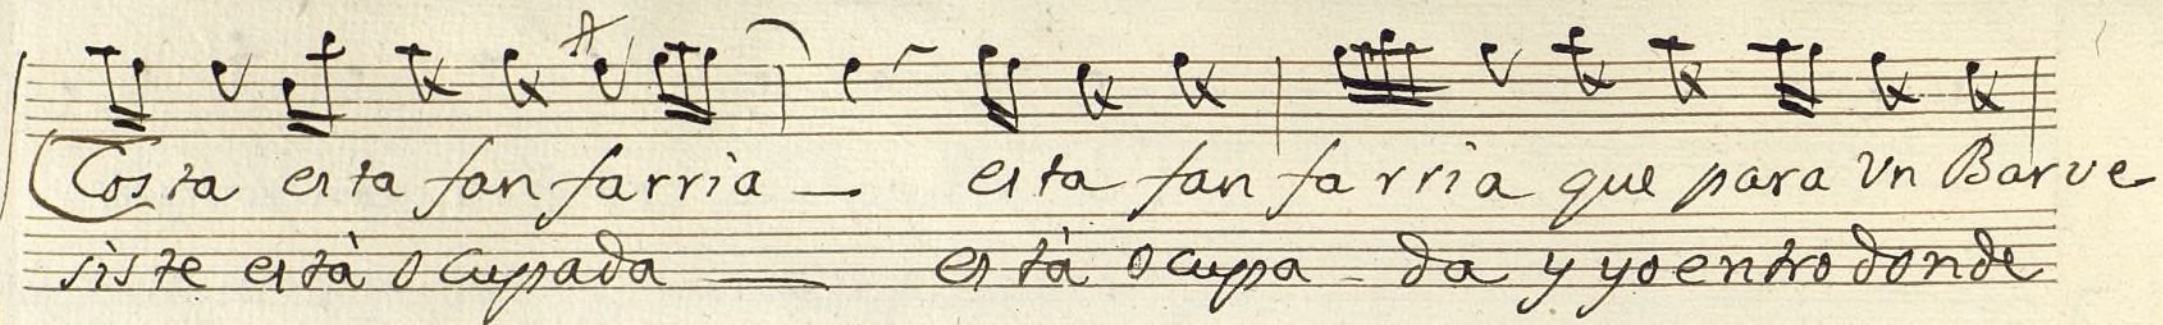 Costa esta fan farria — esta fan fa rria que para Vn Barve
siste está ocupada — está ocupa - da y yo entro donde